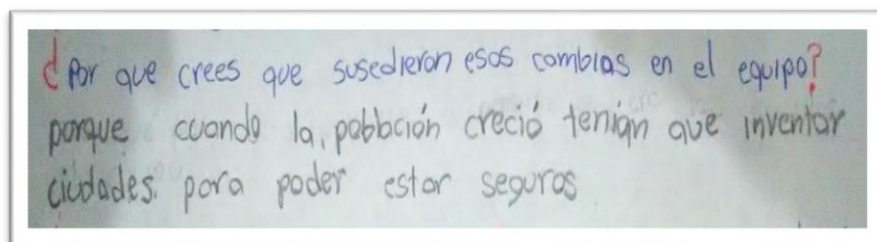 ¿Por que crees que susedieron esos combias en el equipo?
porque cuando la, pobbción creció tenían que inventar
ciudades. para poder estar seguros